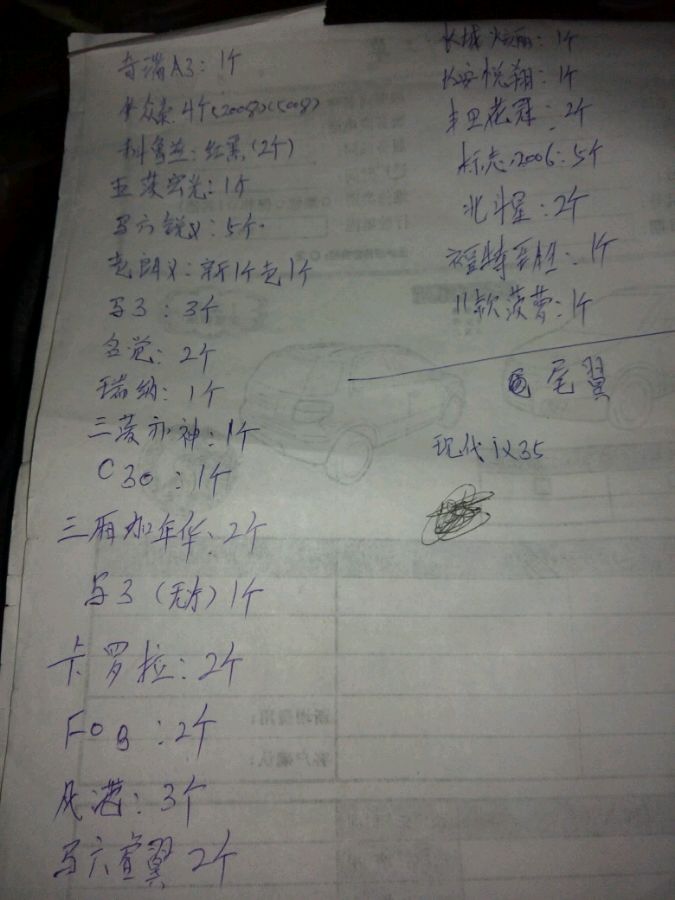 奇瑞A3:1个
众泰4个(2008)(5008)
科鲁兰:红黑(2个)
五菱宏光:1个
马六锐义:5个
老朗义:新1个老1个
马3:3个
名觉:2个
瑞纳:1个
三菱亦神:1个
C30:1个
三厢加年华:2个
马3(无灯)1个
卡罗拉:2个
F0B:2个
风范:3个
马六睿翼2个
长城炫丽:1个
长安悦翔:1个
丰田花冠:2个
标志2006:5个
北斗星:2个
福特
11款菠萝:1个
尾翼
现代ix35
新增费用:
客户确认: